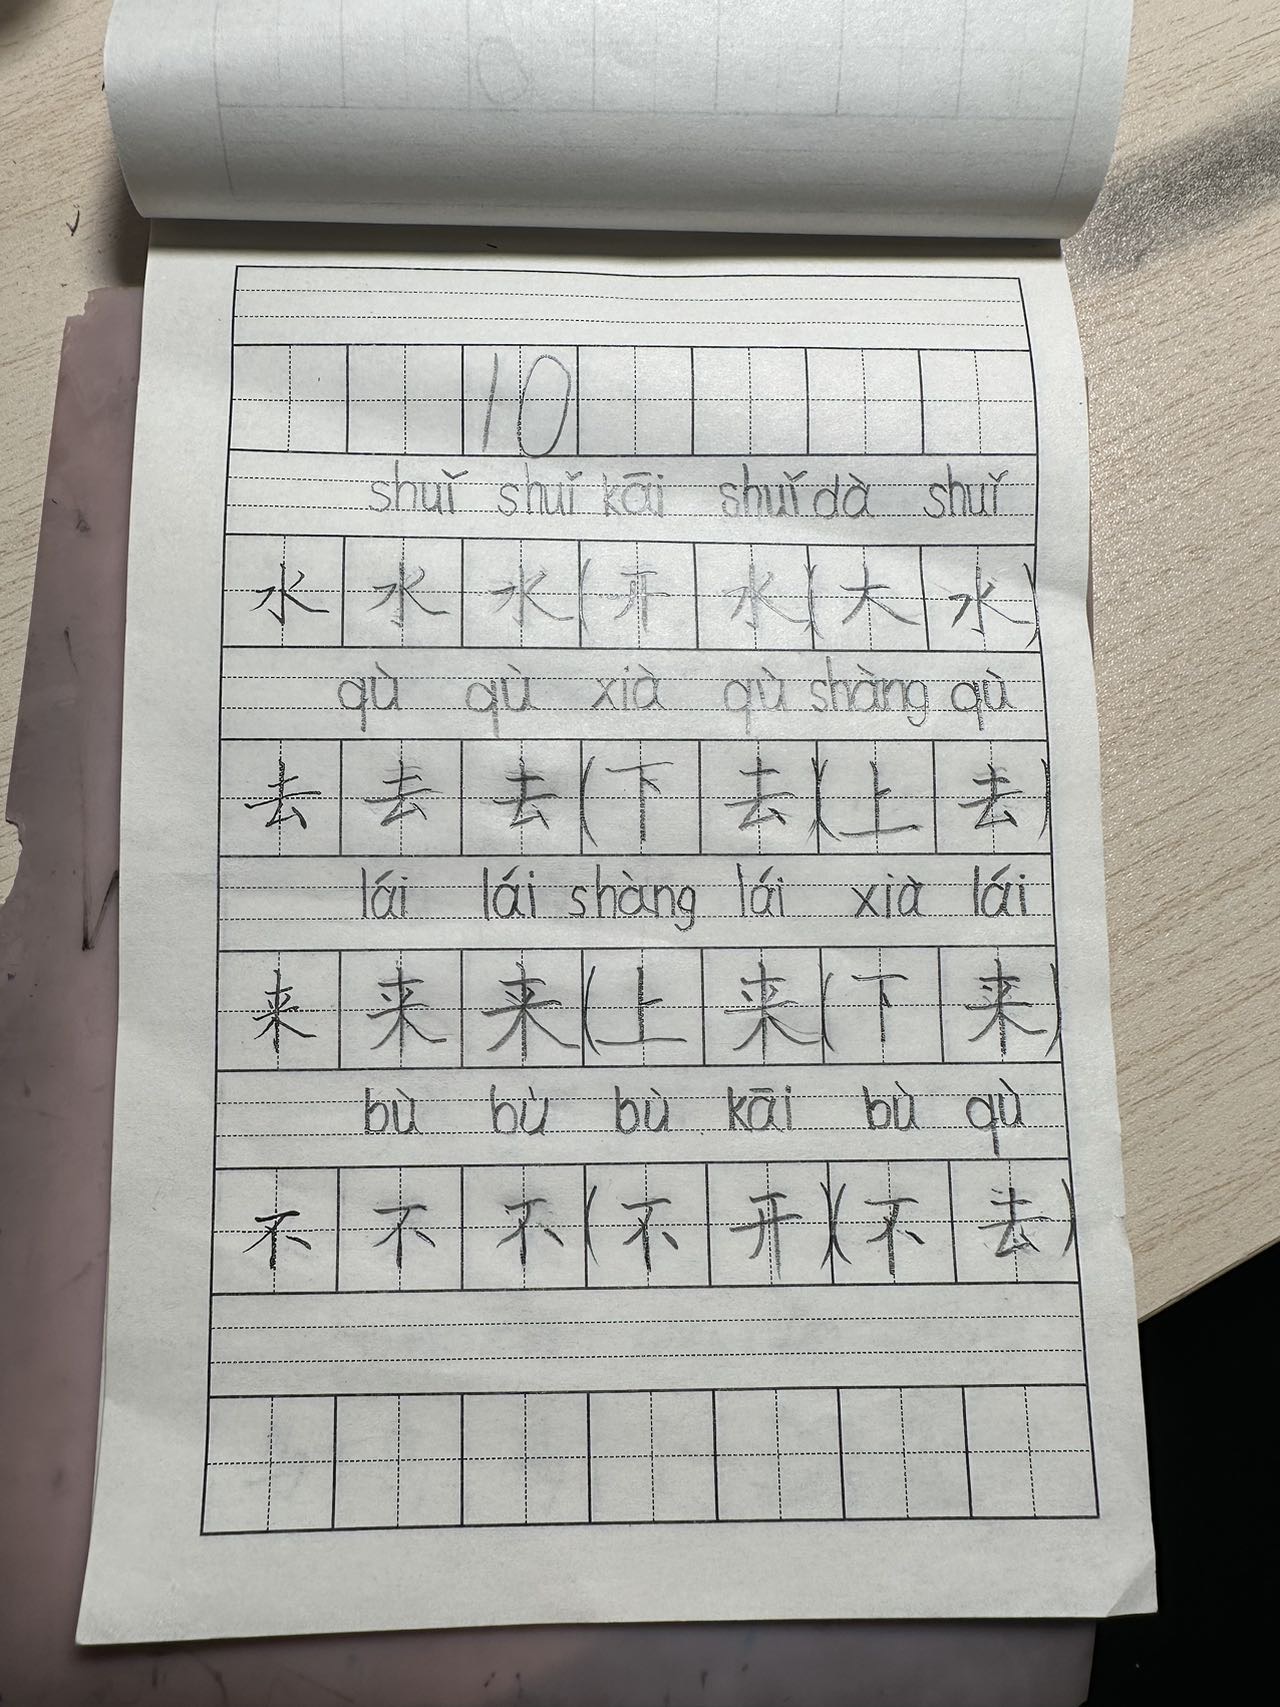 10
shuǐ shuǐ kāi shuǐ dà shuǐ
水 水 水 (开 水)(大 水)
qù qù xià qù shàng qù
去 去 去 (下 去)(上 去)
lái lái shàng lái xià lái
来 来 来 (上 来)(下 来)
bù bù bù kāi bù qù
不 不 不 (不 开)(不 去)